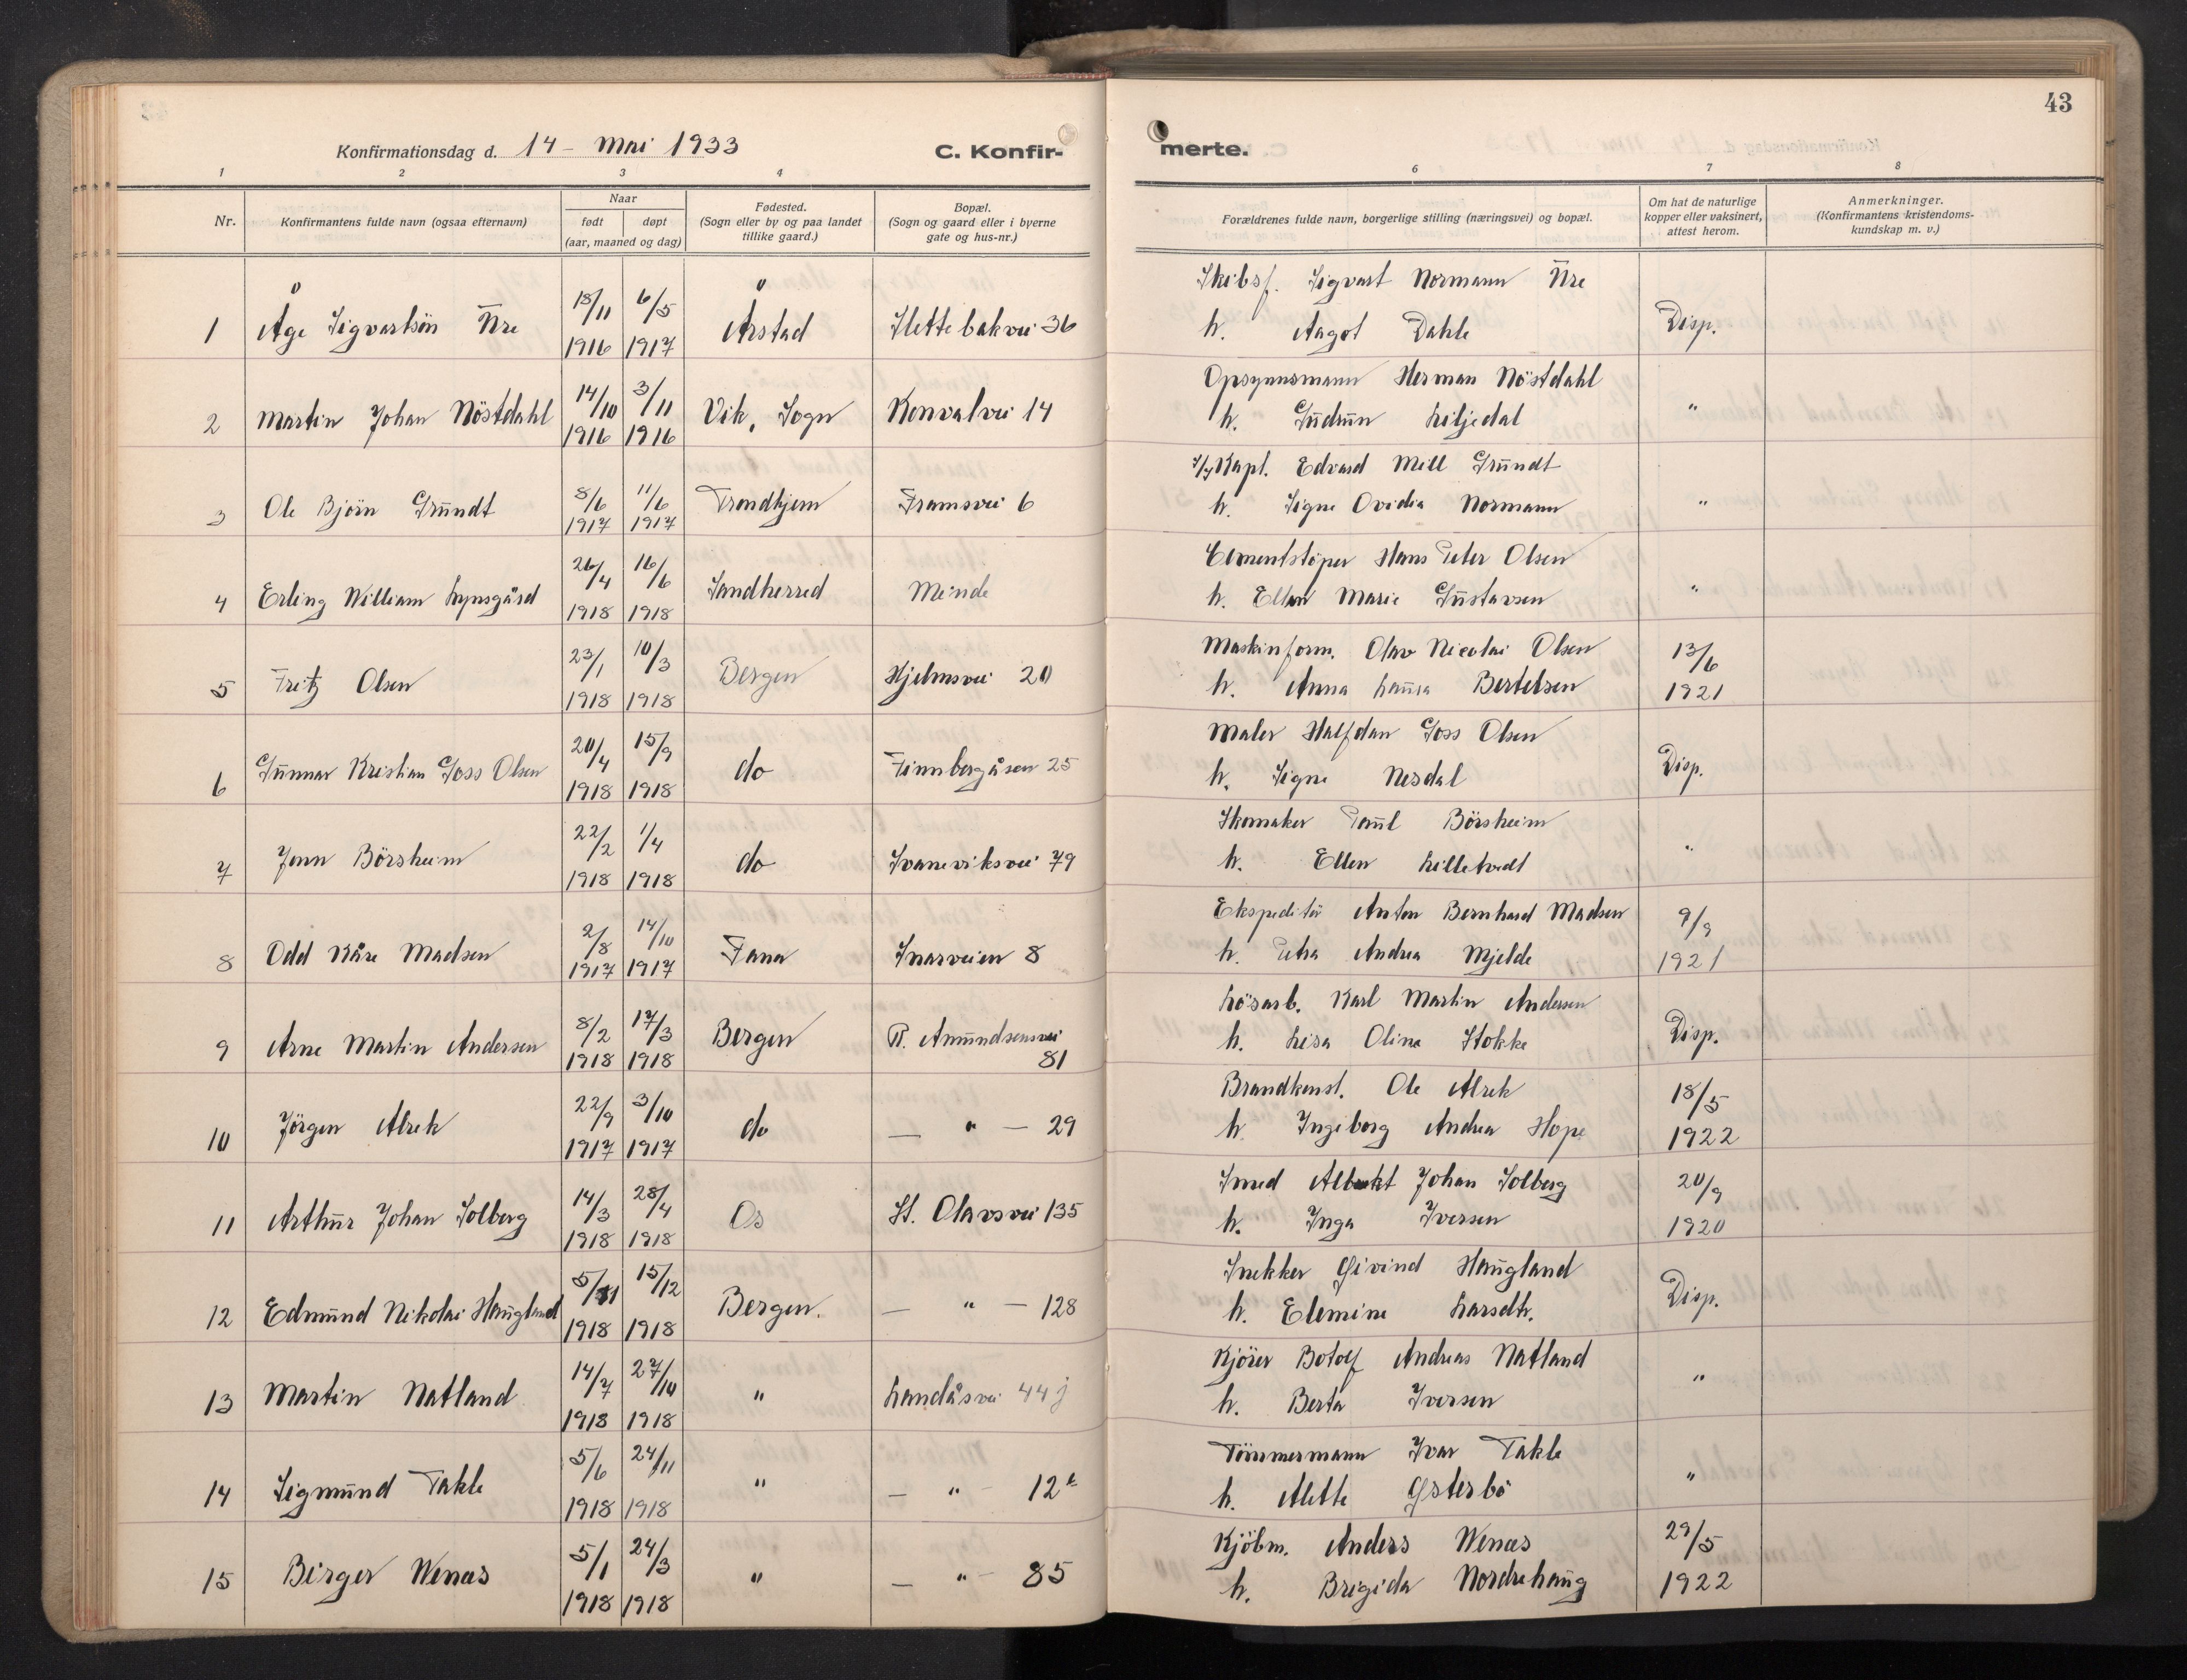 43
Konfirmationsdag d. 14 - Mai 1933
C. Konfir-
merte.
1 2 3 4 6 7 8
Nr.
Konfirmantens fulde navn (ogsaa efternavn)
Naar
født døpt
(aar, maaned og dag)
Fødested.
(Sogn eller by og paa landet
tillike gaard.)
Bopæl.
(Sogn og gaard eller i byerne
gate og hus-nr.)
Forældrenes fulde navn, borgerlige stilling (næringsvei) og bopæl.
Om hat de naturlige
kopper eller vaksinert,
attest herom.
Anmerkninger.
(Konfirmantens kristendoms-
kundskap m. v.)
18/11 6/5 Skibsf. Sigvart Normann Ure
1 Åge Sigvartsön Ure Årstad Slettebakvei 36 Disp.
1916 1917 h. Aagot Dahle
14/10 3/11 Opsynsmann Herman Nöstdahl
2 Martin Johan Nöstdahl Vik, Sogn Konvalvei 14 "
1916 1916 h. Gudrun Liljedal
8/6 11/6 Kapt. Edvard Mell Grundt
3 Ole Björn Grundt Trondhjem Framsvei 6 "
1917 1917 h. Signe Ovidia Normann
26/4 16/6 Cementstöper Hans Peter Olsen
4 Erling William Lynsgård Sandherred Minde "
1918 1918 h. Ellen Marie Gustavsen
23/1 10/3 Maskinform. Olav Nicolai Olsen 13/6
5 Fritz Olsen Bergen Hjelmsvei 20
1918 1918 h. Anna Laura Bertelsen 1921
20/4 15/9 Maler Halfdan Goss Olsen
6 Gunnar Kristian Goss Olsen do Finnbergåsen 25 Disp.
1918 1918 h. Signe Nesdal
22/2 1/4 Skomaker Paul Börsheim
7 Jonn Börsheim do Svaneviksvei 79 "
1918 1918 h. Ellen Lilletvedt
2/8 14/10 Ekspeditör Anton Bernhard Madsen 9/9
8 Odd Kåre Madsen Fana Snarveien 8
1917 1917 h. Petra Andrea Mjelde 1921
8/2 17/3 Lösarb. Karl Martin Andersen
9 Arne Martin Andersen Bergen R. Amundsensvei Disp.
81
1918 1918 h. Lisa Olina Stokke
22/9 3/10 Brandkonst. Ole Alrek 18/5
10 Jörgen Alrek do — " — 29
1917 1917 h. Ingeborg Andrea Hope 1922
14/3 28/4 Smed Albrekt Johan Solberg 20/9
11 Arthur Johan Solberg Os St. Olavsvei 135
1918 1918 h. Inga Iversen 1920
5/11 15/12 Snekker Øivind Haugland
12 Edmund Nikolai Haugland Bergen. — " — 128 Disp.
1918 1918 h. Elemine Larsdtr.
14/7 27/10 Kjörer Botolf Andreas Natland
13 Martin Natland " Landåsvei 44 j "
1918 1918 h. Berta Iversen
5/6 24/11 Tömmermann Ivar Takle
14 Sigmund Takle " — " — 12 "
1918 1918 h. Alette Østerbö
5/1 24/3 Kjöbm. Anders Wenæs 29/5
15 Birger Wenæs " — " — 85
1918 1918 h. Brigida Nordrehaug 1922